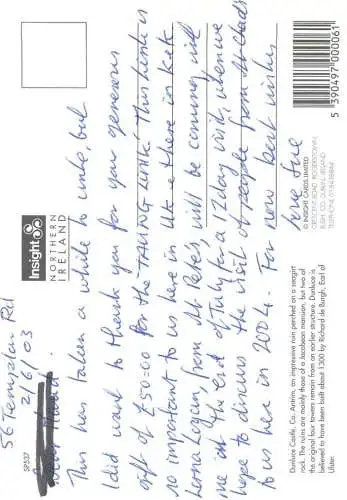 56 Templar Rd
2/6/03
This has taken a while to write, but
I did want to thank you for your generous
gift of £50:00 for the TALKING LINK. This Link is
so important to us here in like there in
Lorna Logan from St Peters, will be coming with
me at the end of July for a 7/day visit, when we
hope to discuss the visit of people from
to us here in 2004. For now best wishes
SP537
Insight
NORTHERN
IRELAND
Dunluce Castle, Co. Antrim, an impressive ruin perched on a seagirt
rock. The ruins are mainly those of a Jacobean mansion, but two of
the original four towers remain from an earlier structure. Dunluce is
believed to have been built about 1300 by Richard de Burgh, Earl of
Ulster.
© INSIGHT CARDS LIMITED
CRESCENT ROAD, ROGERSTOWN,
RUSH, CO. DUBLIN, IRELAND
TELEPHONE 01-8438844
5 390497 000061